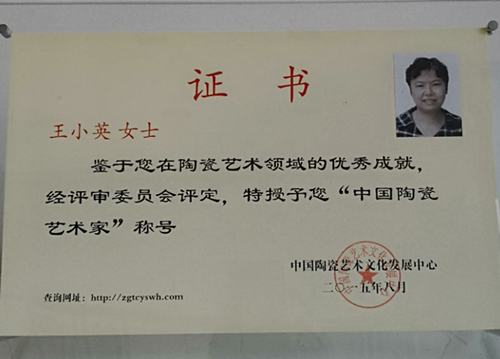 证书
王小英 女士
鉴于您在陶瓷艺术领域的优秀成就，
经评审委员会评定，特授予您“中国陶瓷
艺术家”称号
中国陶瓷艺术文化发展中心
二〇一五年八月
查询网址：http://zgtcyswh.com